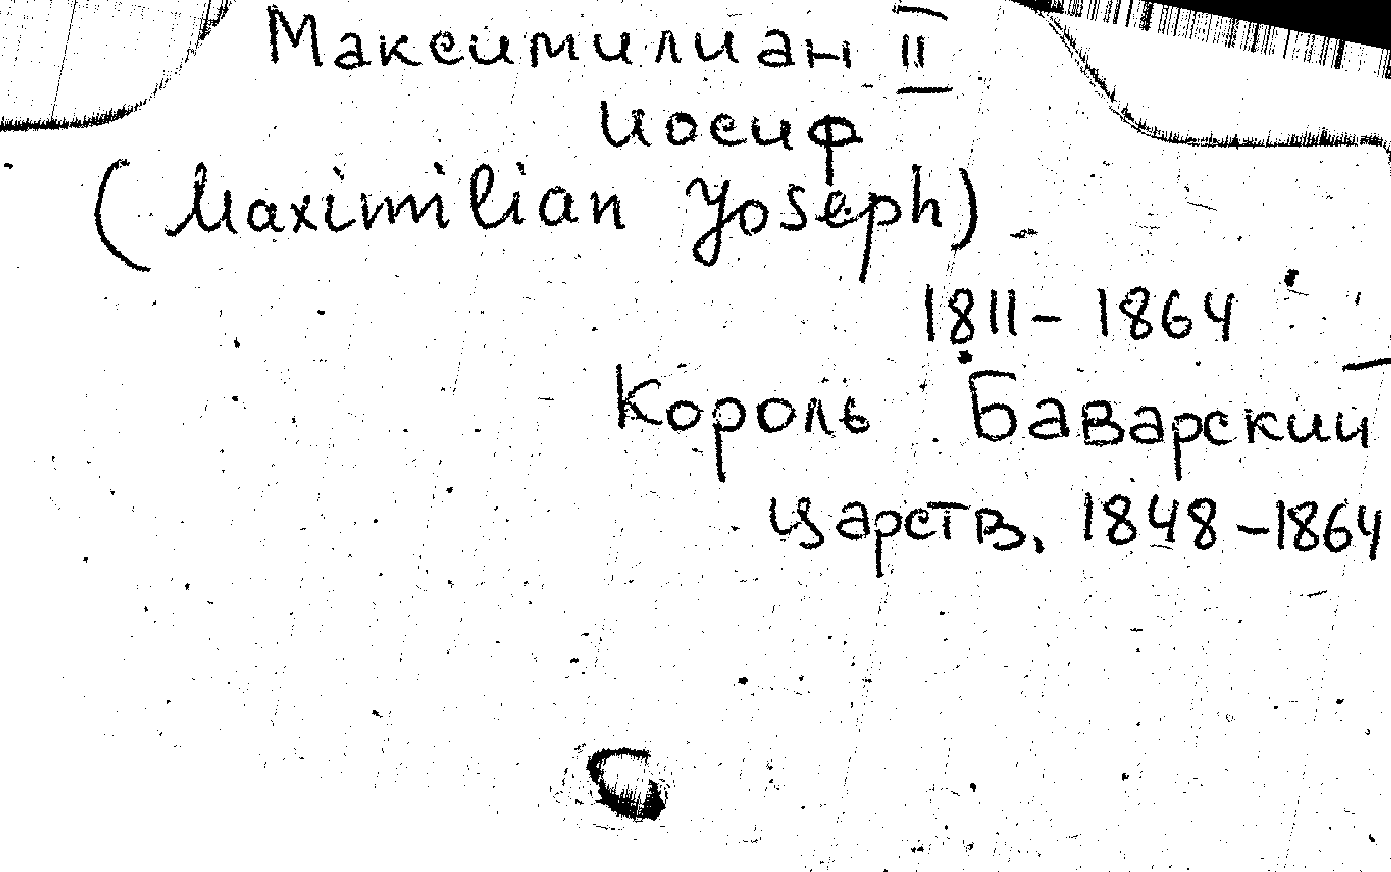 Максимилиан II
Иосиф
(Maximilian Yoseph)
1811 - 1864
Король Баварский
Царств. 1848 - 1864